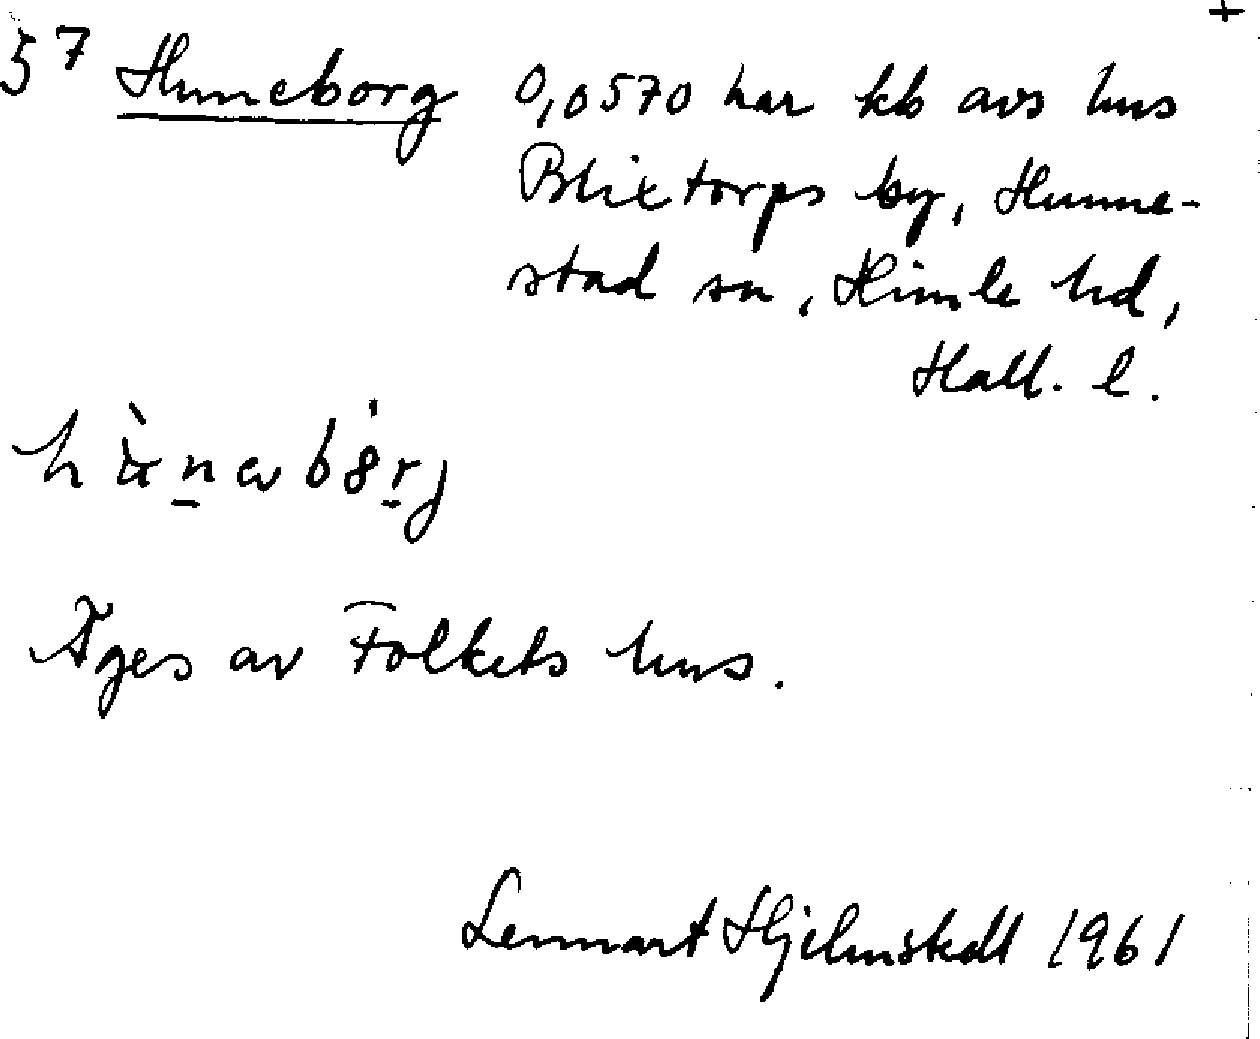 +
5⁷ Huneborg 0,0570 har kb avs hus
Blixtorps by, Hunne-
stad sn, Himle hd,
Hall. l.
Äges av Folkets hus.
Lennart Hjelmstedt 1961